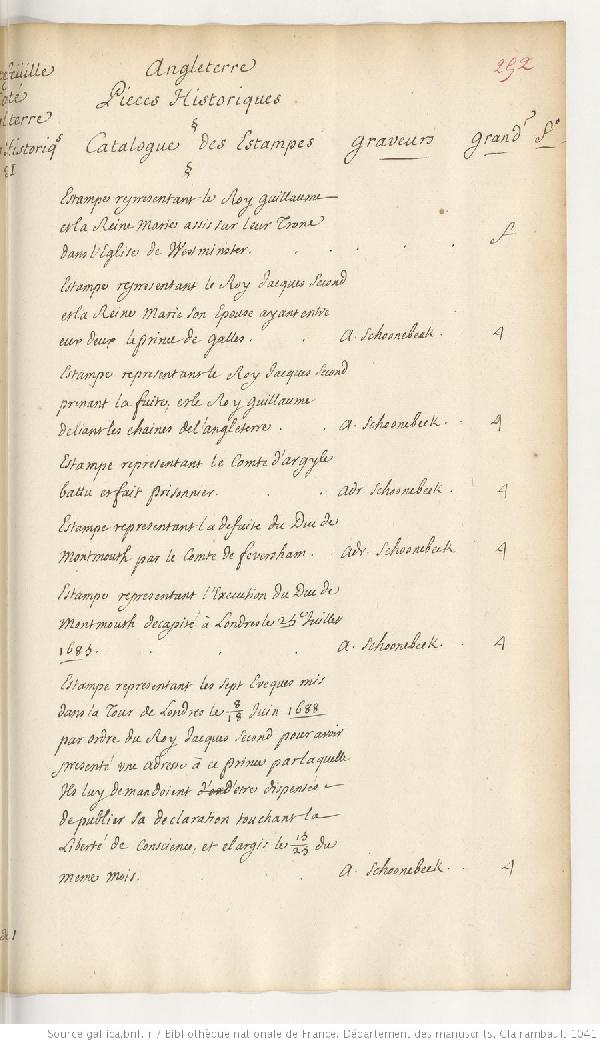 Angleterre
292
Pieces Historiques
Catalogue des Estampes graveurs grandr fo
Estampe representant le Roy guillaume
et la Reine Marie assis sur leur Trone
dans l'Eglise de Westminster. f
Estampe representant le Roy Jacques Second
et la Reine Marie son Epouse ayant entre
eux deux le prince de galles. A. Schoonebeek. 4
Estampe representant le Roy Jacques Second
prenant la fuite, et le Roy guillaume
deliant les chaines de l'angleterre. A. Schoonebeek. 4
Estampe representant le Comte d'argyle
battu et fait prisonnier. Adr Schoonebeek. 4
Estampe representant la defaite du Duc de
Montmouth par le Comte de feversham. Adr. Schoonebeek 4
Estampe representant l'Execution du Duc de
Montmouth decapité à Londres le 25e Juillet
1685. A. Schoonebeek. 4
Estampe representant les Sept Eveques mis
dans la Tour de Londres le 8/18 Juin 1688
par ordre du Roy Jacques Second pour avoir
presenté une adresse à ce prince par laquelle
Ils luy demandoient d'etre dispensés
de publier sa declaration touchant la
Liberté de Conscience, et elargis le 15/25 du
meme mois. A. Schoonebeek. 4
Source gallica.bnf.fr / Bibliothèque nationale de France. Département des manuscrits. Clairambault 1041